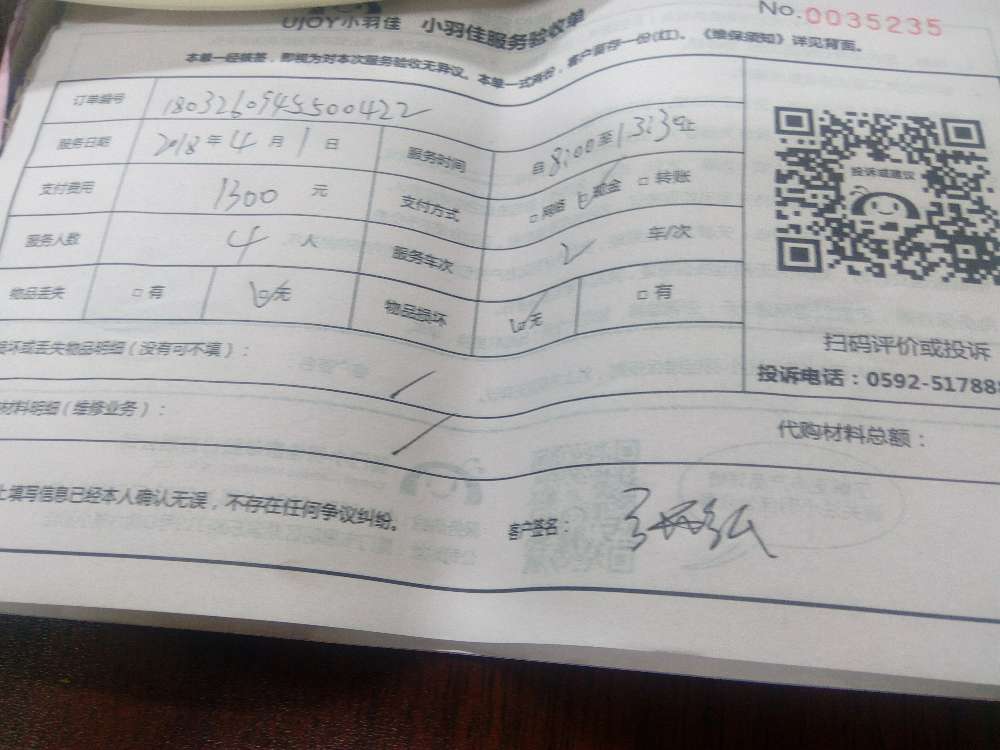 UJOY小羽佳 小羽佳服务验收单
No.0035235
本单一经核签，即视为对本次服务验收无异议。本单一式两份，客户留存一份(红)。《维保须知》详见背面。
订单编号 1803260945500422
服务日期 2018年4月1日 服务时间 自8:00至13:30止
支付费用 1300元 支付方式 □网络 ☑现金 □转账
服务人数 4人 服务车次 2车/次
物品丢失 □有 ☑无 物品损坏 ☑无 □有
损坏或丢失物品明细（没有可不填）： /
材料明细（维修业务）： / 代购材料总额：
上填写信息已经本人确认无误，不存在任何争议纠纷。 客户签名：
投诉或建议
扫码评价或投诉
投诉电话：0592-517888